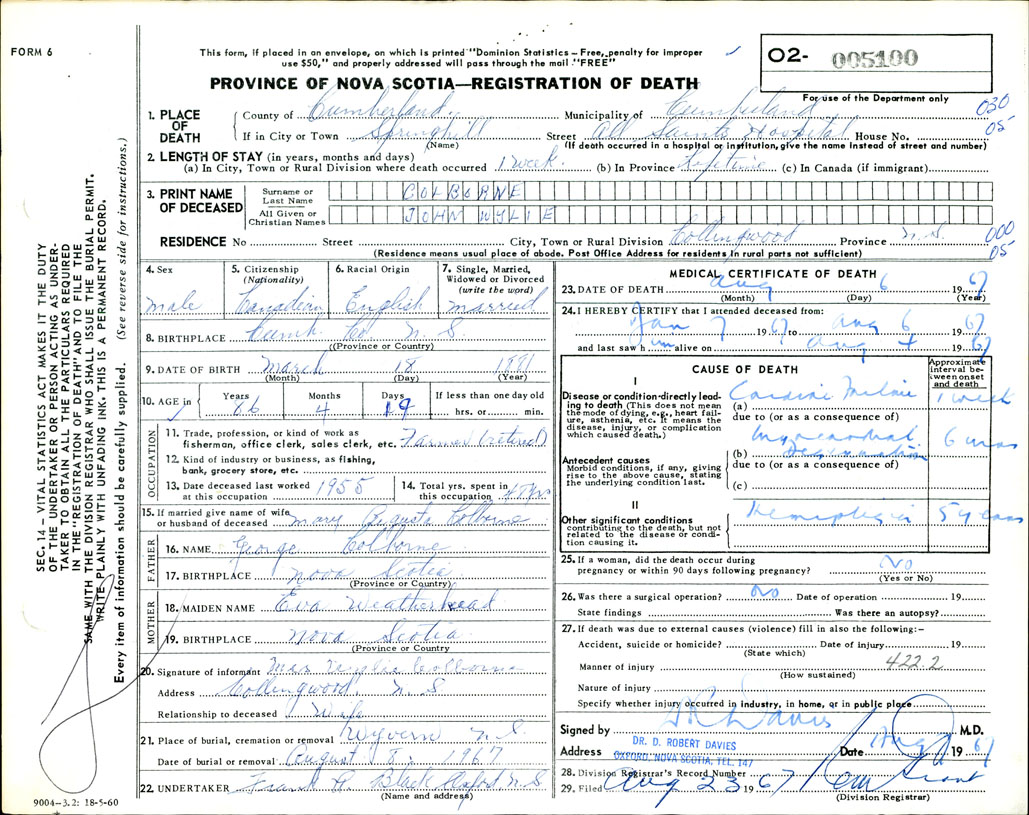 FORM 6
This form, if placed in an envelope, on which is printed "Dominion Statistics – Free, penalty for improper
use $50," and properly addressed will pass through the mail "FREE"
PROVINCE OF NOVA SCOTIA—REGISTRATION OF DEATH
O2- 005100
For use of the Department only
030
05
SEC. 14 – VITAL STATISTICS ACT MAKES IT THE DUTY
OF THE UNDERTAKER OR PERSON ACTING AS UNDER-
TAKER TO OBTAIN ALL THE PARTICULARS REQUIRED
IN THE "REGISTRATION OF DEATH" AND TO FILE THE
SAME WITH THE DIVISION REGISTRAR WHO SHALL ISSUE THE BURIAL PERMIT.
WRITE PLAINLY WITH UNFADING INK. THIS IS A PERMANENT RECORD.
Every item of information should be carefully supplied. (See reverse side for instructions.)
1. PLACE OF DEATH
County of Cumberland Municipality of Cumberland
If in City or Town Springhill Street All Saints Hospital House No.
(Name) (If death occurred in a hospital or institution, give the name instead of street and number)
2. LENGTH OF STAY (in years, months and days)
(a) In City, Town or Rural Division where death occurred 1 week (b) In Province Lifetime (c) In Canada (if immigrant)
3. PRINT NAME OF DECEASED
Surname or Last Name COLBORNE
All Given or Christian Names JOHN WYLIE
RESIDENCE No Street City, Town or Rural Division Collingwood Province N.S. 000
(Residence means usual place of abode. Post Office Address for residents in rural parts not sufficient) 05
4. Sex male
5. Citizenship (Nationality) Canadian
6. Racial Origin English
7. Single, Married, Widowed or Divorced (write the word) married
8. BIRTHPLACE Cumb. Co. N.S
(Province or Country)
9. DATE OF BIRTH March 18 1881
(Month) (Day) (Year)
10. AGE in Years 86 Months 4 Days 19 If less than one day old
hrs. or min.
OCCUPATION
11. Trade, profession, or kind of work as
fisherman, office clerk, sales clerk, etc. Farmer (retired)
12. Kind of industry or business, as fishing,
bank, grocery store, etc.
13. Date deceased last worked at this occupation 1955
14. Total yrs. spent in this occupation
15. If married give name of wife
or husband of deceased Mary Augusta Colborne
FATHER
16. NAME George Colborne
17. BIRTHPLACE Nova Scotia
(Province or Country)
MOTHER
18. MAIDEN NAME Eva Weatherhead
19. BIRTHPLACE Nova Scotia
(Province or Country
20. Signature of informant Mrs Wylie Colborne
Address Collingwood N.S
Relationship to deceased Wife
21. Place of burial, cremation or removal Wyvern N.S.
Date of burial or removal August 8, 1967
22. UNDERTAKER Frank A. Black Oxford N.S
(Name and address)
9004–3.2: 18-5-60
MEDICAL CERTIFICATE OF DEATH
23. DATE OF DEATH Aug 6 1967
(Month) (Day) (Year)
24. I HEREBY CERTIFY that I attended deceased from:
Jan 7 1967 to Aug 6 67
and last saw him alive on Aug 4 1967
CAUSE OF DEATH
Approximate interval between onset and death
I
Disease or condition directly lead-
ing to death (This does not mean
the mode of dying, e.g., heart fail-
ure, asthenia, etc. It means the
disease, injury, or complication
which caused death.)
(a) Cardiac Failure 1 week
due to (or as a consequence of)
Antecedent causes
Morbid conditions, if any, giving
rise to the above cause, stating
the underlying condition last.
(b) Myocardial Degeneration 6 mos
due to (or as a consequence of)
(c)
II
Other significant conditions
contributing to the death, but not
related to the disease or condi-
tion causing it.
Hemiplegia 5 years
25. If a woman, did the death occur during
pregnancy or within 90 days following pregnancy? No
(Yes or No)
26. Was there a surgical operation? No Date of operation 19
State findings Was there an autopsy?
27. If death was due to external causes (violence) fill in also the following:–
Accident, suicide or homicide? Date of injury 19
(State which)
422.2
Manner of injury
(How sustained)
Nature of injury
Specify whether injury occurred in industry, in home, or in public place
Signed by D R Davies M.D.
Address DR. D. ROBERT DAVIES
OXFORD, NOVA SCOTIA, TEL. 147
Date Aug 1967
28. Division Registrar's Record Number
29. Filed Aug 23 1967 Grant
(Division Registrar)